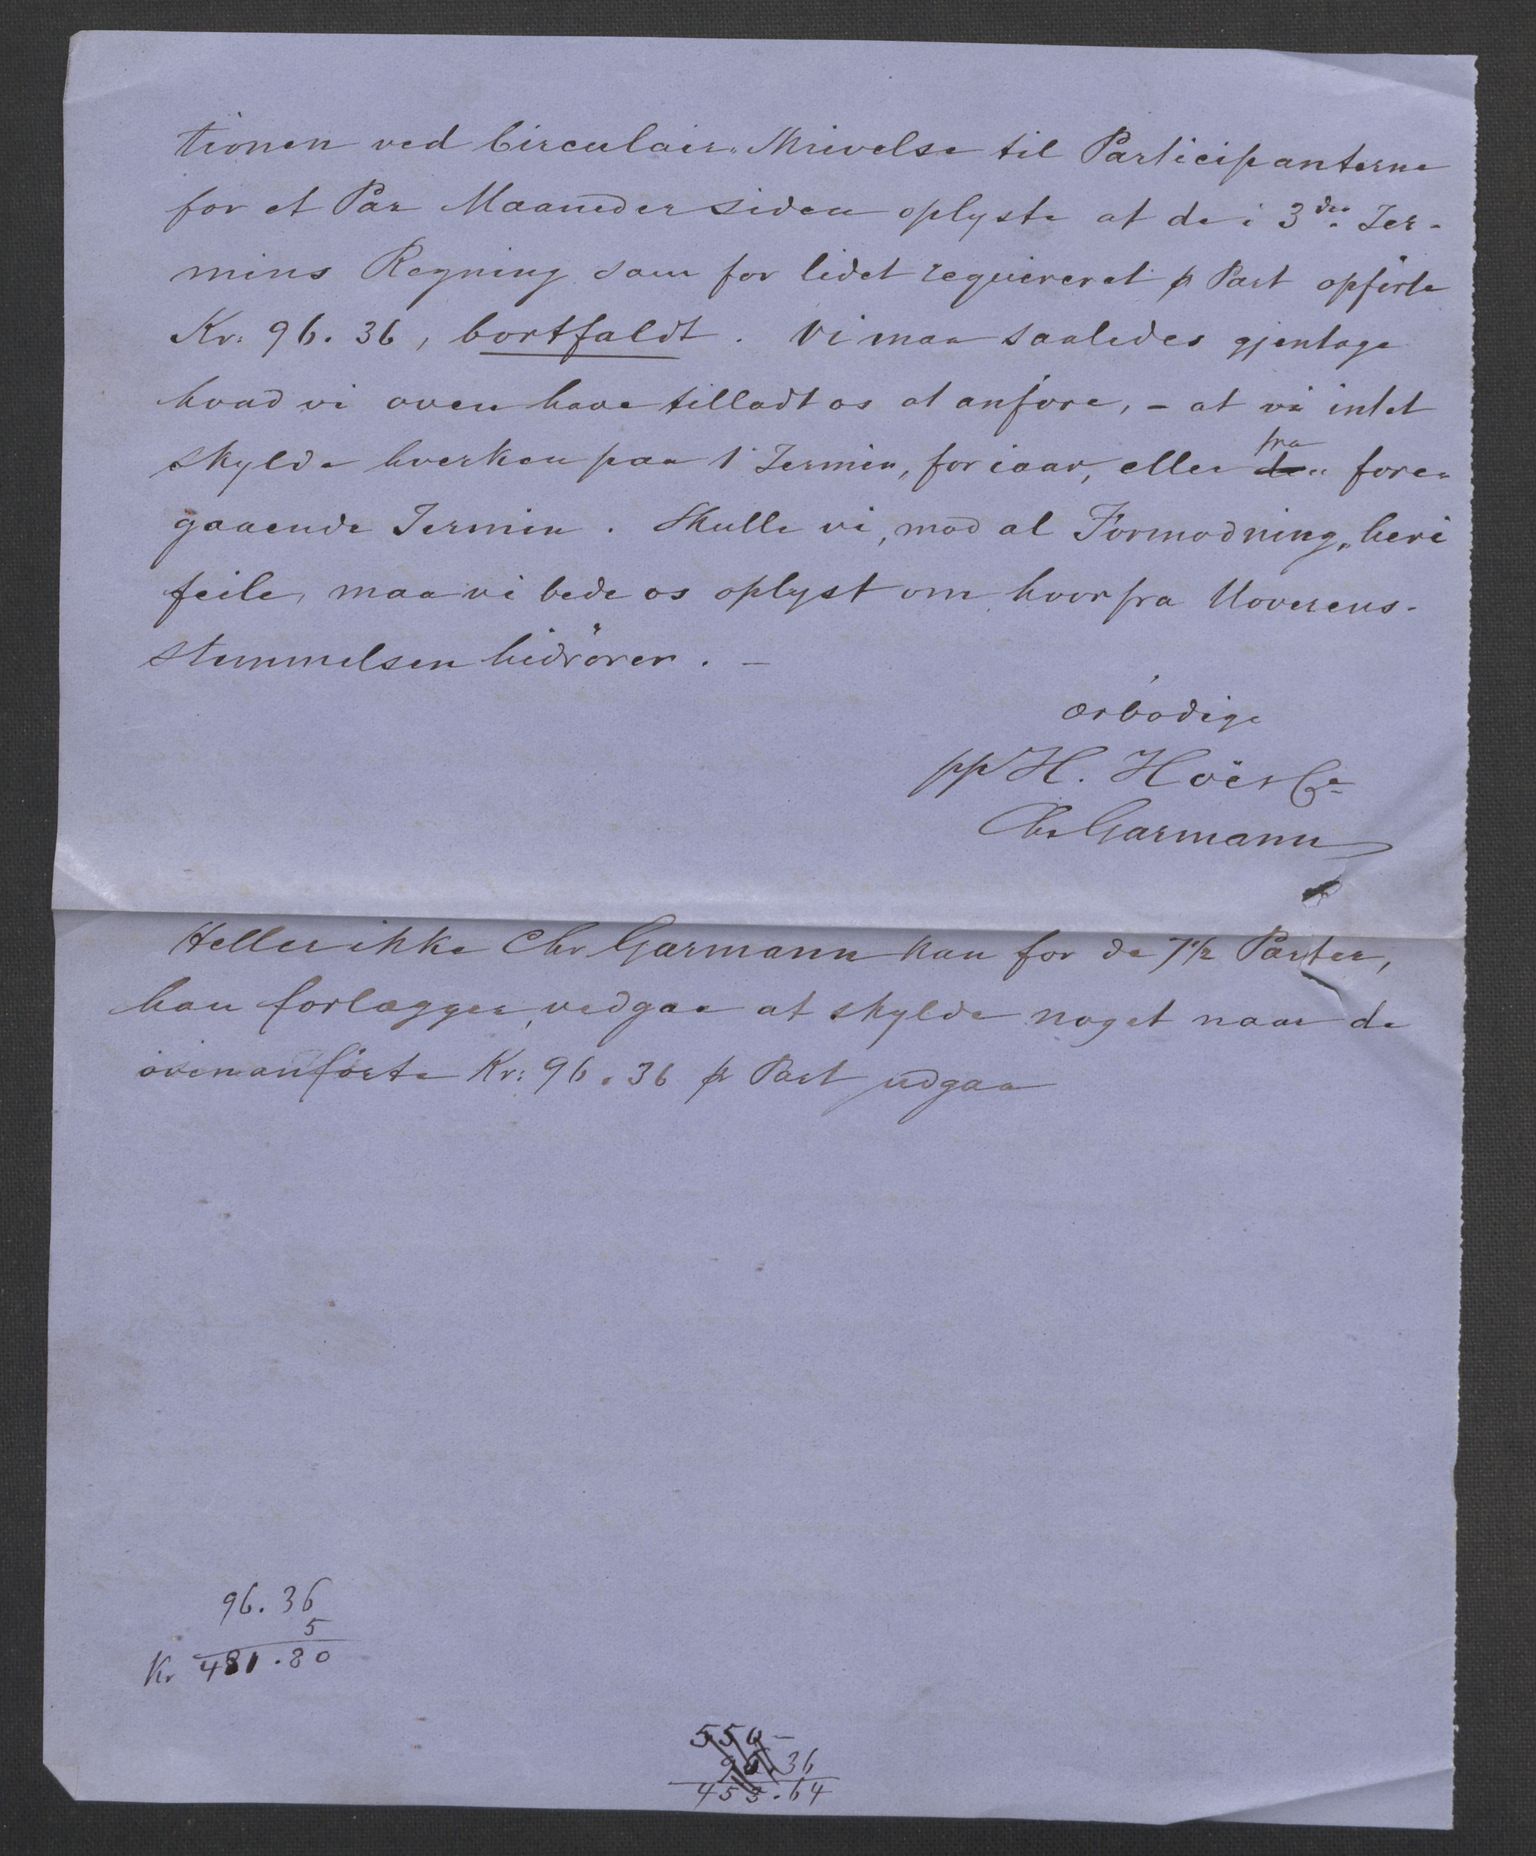 tionen ved Circulair-Skrivelse til Participanterne
for et Par Maaneder siden oplyste at de i 3die Ter-
mins Regning som for lidet reqvireret pr Part opförte
Kr: 96.36, bortfaldt. Vi maa saaledes gjentage
hvad vi oven have tilladt os at anføre, - at vi intet
skylde hverken paa 1 Termin, for iaar, eller fra fore-
gaaende Termin. Skulle vi, mod al Formodning, heri
feile, maa vi bede os oplyst om hvorfra Uoverens-
stemmelsen hidrörer. -
ærbødigst
pp H. Höes Co
Chr Garmann
Heller ikke Chr. Garmann kan for de 7 1/2 Parter,
han forlægger, vedgaa at skylde noget naar de
ovenanførte Kr: 96.36 pr Part udgaa
96.36
5
Kr 481.80
550 -
96.36
453.64